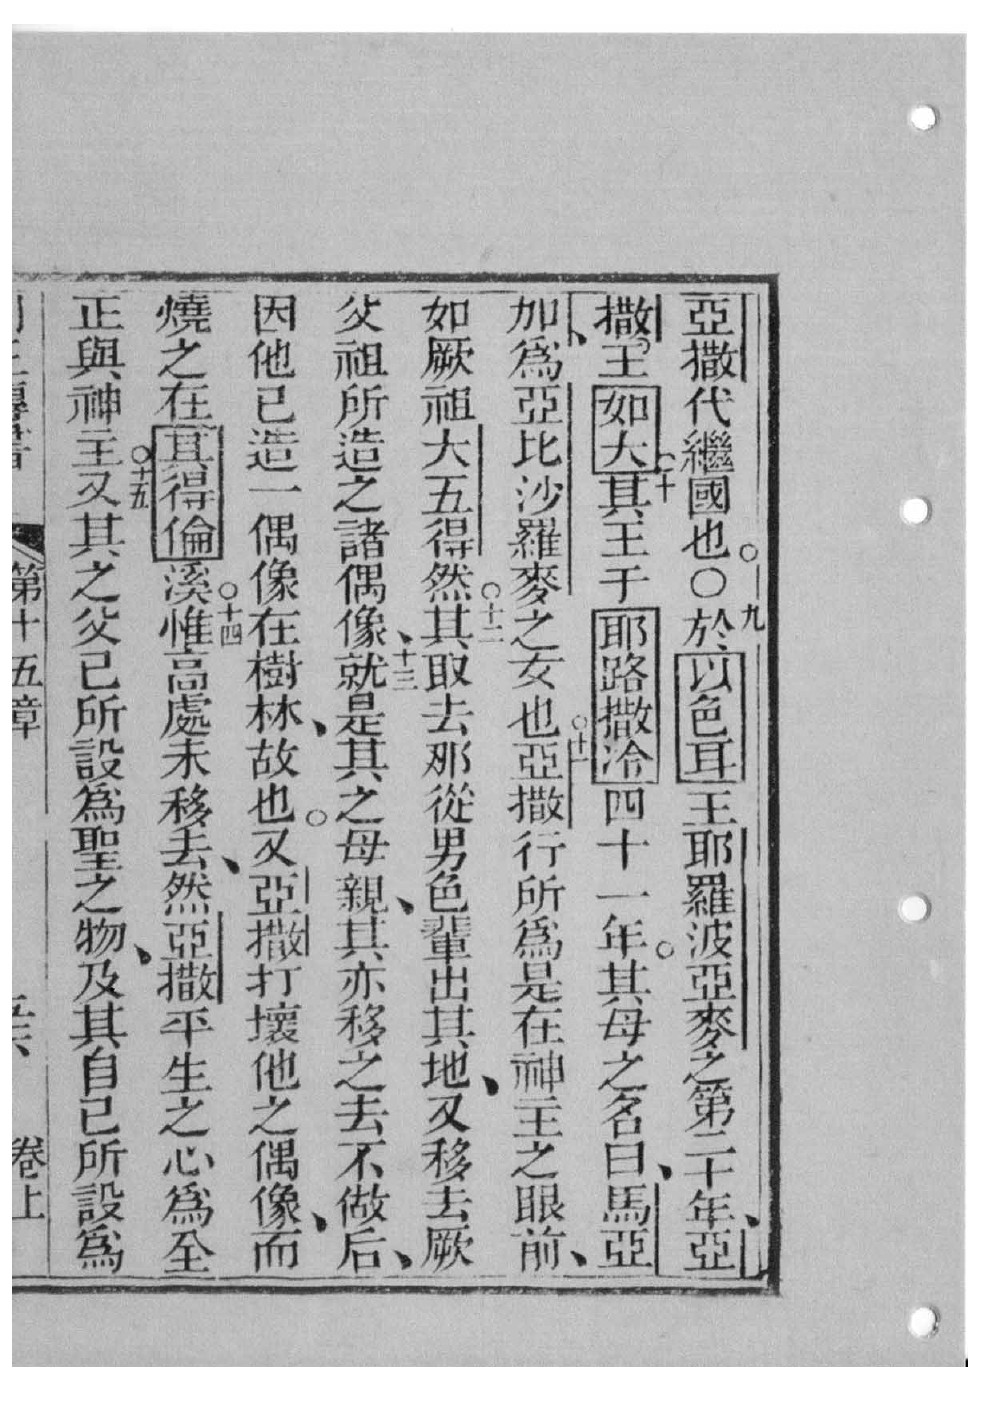 亞撒代繼國也。○九於以色耳王耶羅波亞麥之第二十年、亞
撒王。如大十其王于耶路撒冷四十一年。其母之名曰、馬亞
加、爲亞比沙羅麥之女也。十一亞撒行所爲是在神主之眼前、
如厥祖大五得。十二然其取去那從男色輩出其地、又移去厥
父祖所造之諸偶像、十三就是其之母親、其亦移之去不做后、
因他已造一偶像在樹林、故也。又亞撒打壞他之偶像、而
燒之在其得倫溪。十四惟高處未移丢、然亞撒平生之心爲全
正與神主。十五又其之父已所設爲聖之物、及其自己所設爲
第十五章 卷上